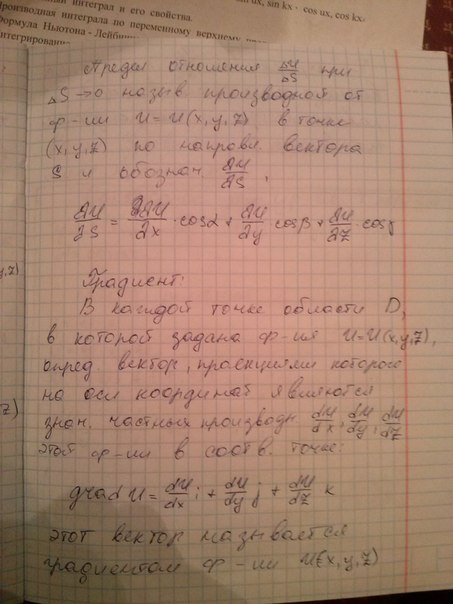 нный интеграл и его свойства.
ux, sin kx, cos ux, cos kx,
Производная интеграла по переменному верхнему
Формула Ньютона - Лейбни
нтегрирование
Предел отношения ΔU/ΔS при
ΔS→0 назыв производной от
ф-ии U=U(x,y,z) в точке
(x,y,z) по направл. вектора
S и обознач. ∂U/∂S,
∂U/∂S = ∂U/∂x · cosα + ∂U/∂y cosβ + ∂U/∂z · cosγ
Градиент:
В каждой точке области D,
в которой задана ф-ия U=U(x,y,z),
опред. вектор, проекциями которого
на оси координат являются
знач. частных производн dU/dx, dU/dy, dU/dz
этой ф-ии в соотв. точке:
grad U = dU/dx i + dU/dy j + dU/dz k
этот вектор называется
градиентом ф-ии U(x,y,z)
y,z)
z)